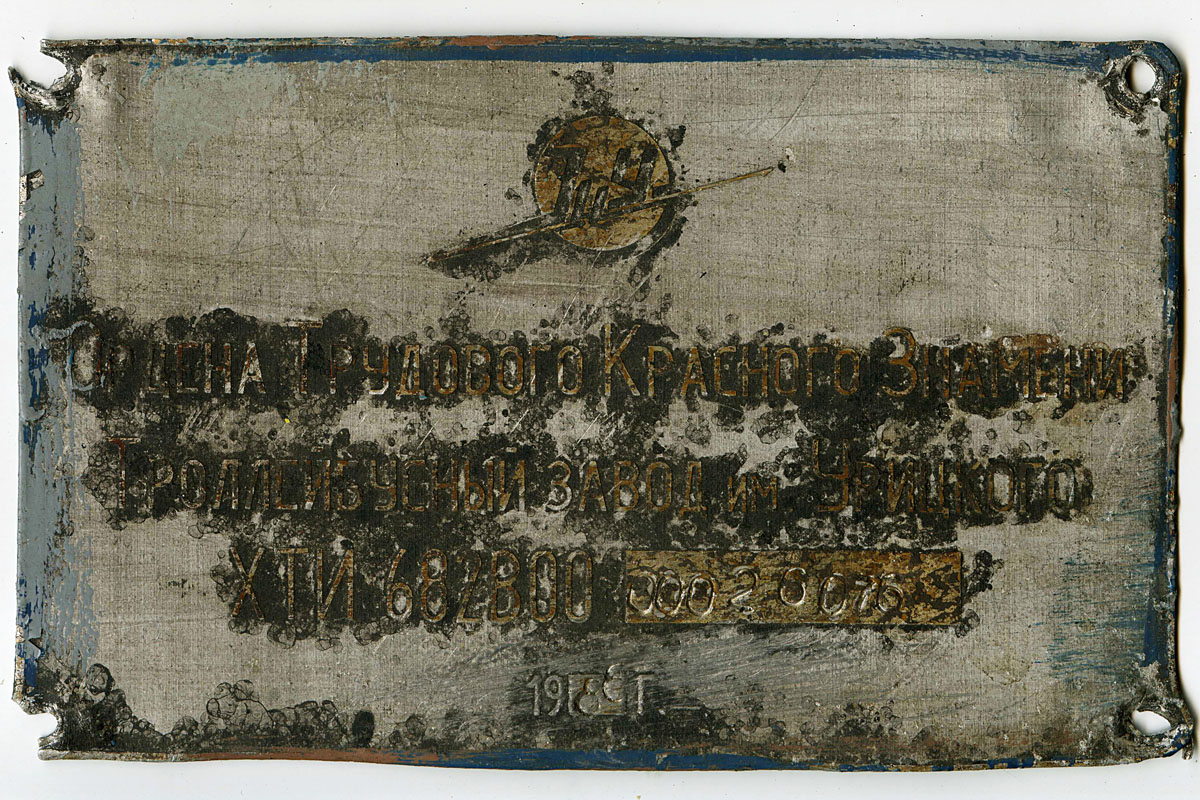 Ордена Трудового Красного Знамени
Троллейбусный завод им. Урицкого
ХТИ 682В.00 00020076
Г.